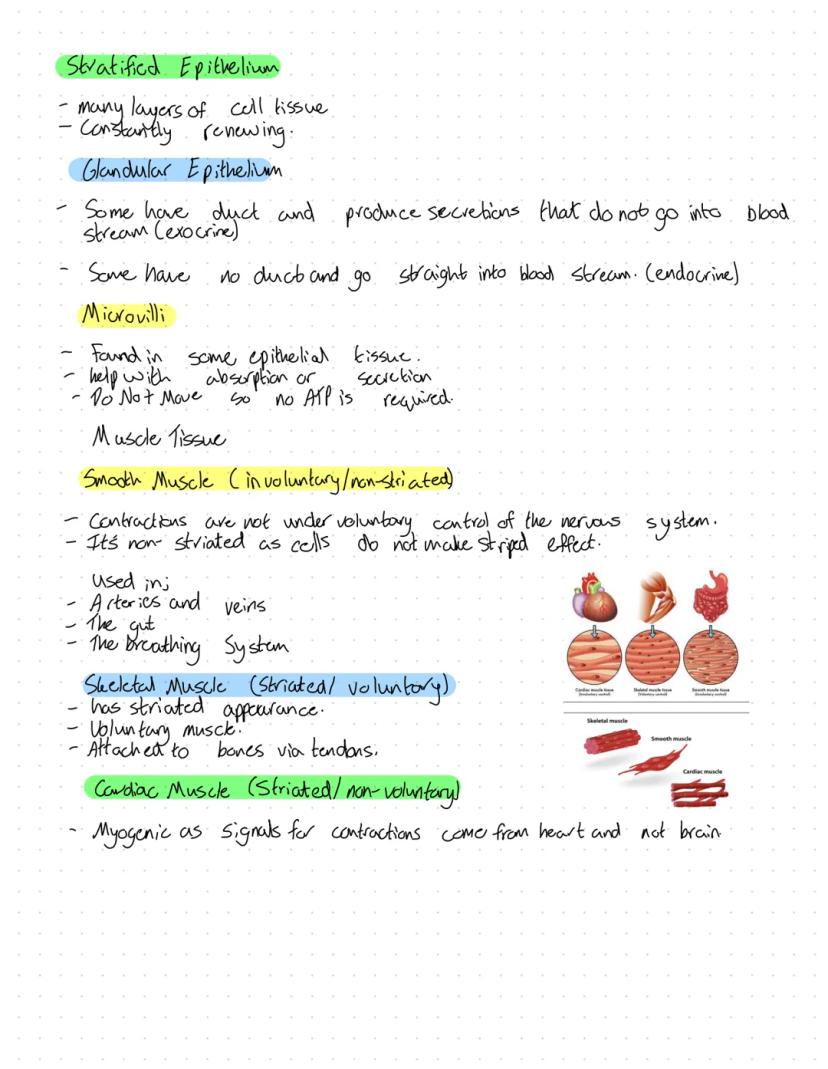 Stratified Epithelium
- many layers of cell tissue
- Constantly renewing.
Glandular Epithelium
- Some have duct and produce secretions that do not go into blood
stream (exocrine)
- Some have no duct and go straight into blood stream. (endocrine)
Microvilli
- Found in some epithelial tissue.
- help with absorption or secretion
- Do Not Move so no ATP is required.
Muscle Tissue
Smooth Muscle (involuntary/non-striated)
- Contractions are not under voluntary control of the nervous system.
- It's non-striated as cells do not make striped effect.
Used in;
- Arteries and veins
- The gut
- The breathing System
Cardiac muscle tissue Skeletal muscle tissue Smooth muscle tissue
(Involuntary control) (Voluntary control) (Involuntary control)
Skeletal Muscle (Striated/ voluntary)
- has striated appearance.
- Voluntary muscle.
- Attached to bones via tendons.
Skeletal muscle
Smooth muscle
Cardiac muscle
Cardiac Muscle (Striated/non-voluntary)
- Myogenic as signals for contractions come from heart and not brain